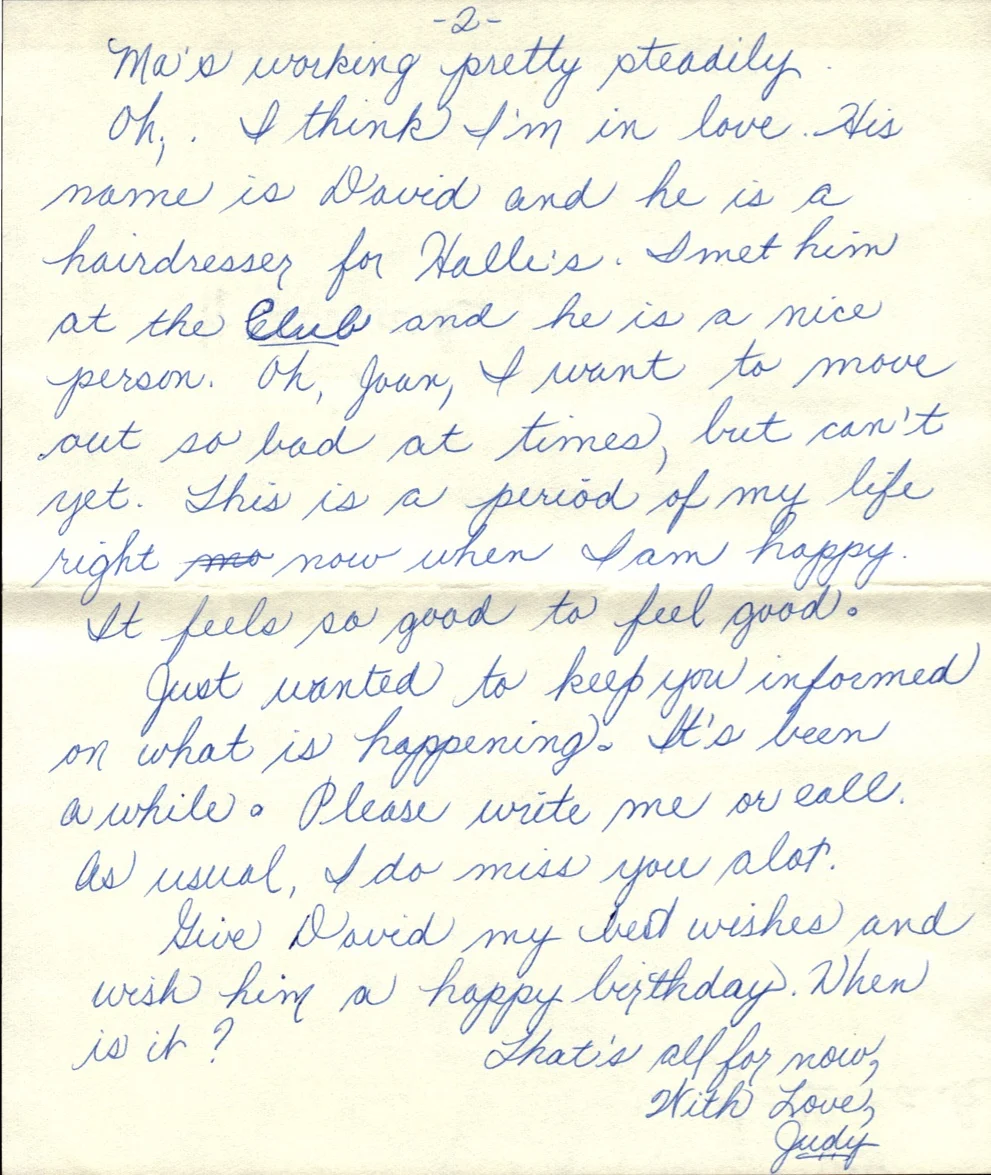 -2-
Ma's working pretty steadily.
Oh, . I think I'm in love. His
name is David and he is a
hairdresser for Halle's. I met him
at the Club and he is a nice
person. Oh, Joan, I want to move
out so bad at times, but can't
yet. This is a period of my life
right mo now when I am happy.
It feels so good to feel good.
Just wanted to keep you informed
on what is happening. It's been
a while. Please write me or call.
As usual, I do miss you alot.
Give David my best wishes and
wish him a happy birthday. When
is it?
That's all for now,
With Love,
Judy